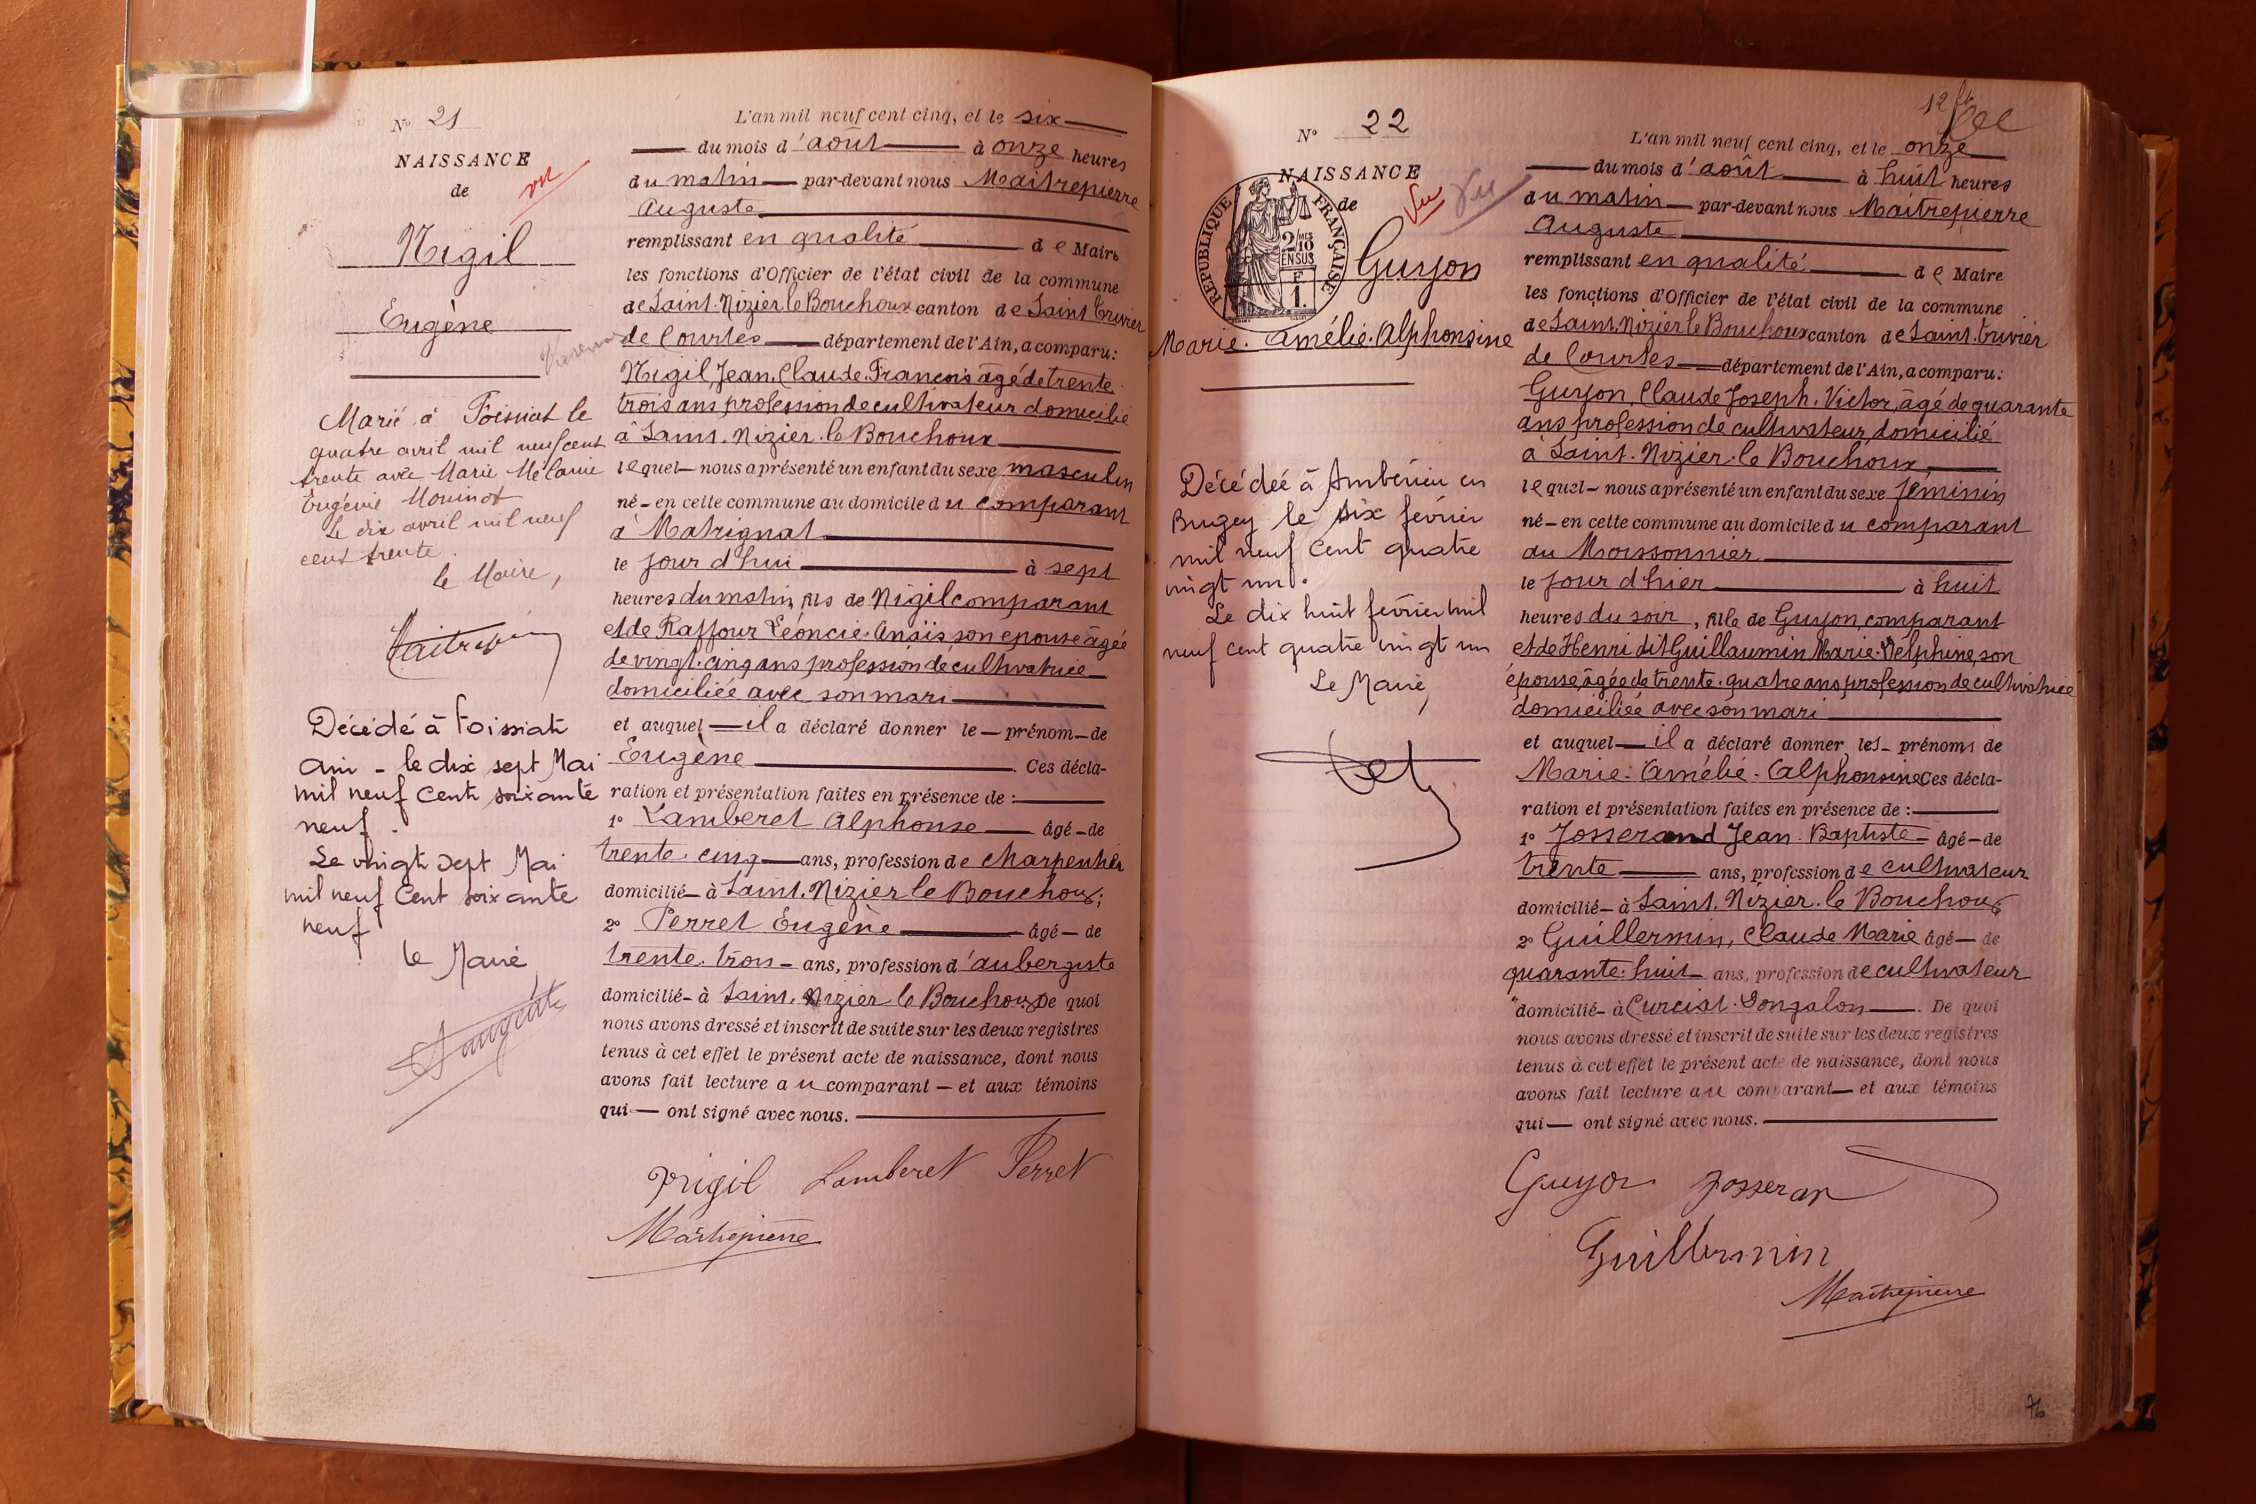 N° 21
NAISSANCE
de
vu
Nigil
Eugène
Marié à Foissiat le
quatre avril mil neuf cent
trente avec Marie Mélanie
Eugénie Mouinot
Le dix avril mil neuf
cent trente.
le Maire,
Décédé à Foissiat
Ain - le dix sept Mai
mil neuf cent soixante
neuf.
Le vingt sept Mai
mil neuf cent soixante
neuf
le Maire
L'an mil neuf cent cinq, et le six
du mois d'août à onze heures
du matin par-devant nous Maitrepierre
Auguste
remplissant en qualité de Maire
les fonctions d'Officier de l'état civil de la commune
de Saint-Nizier le Bouchoux canton de Saint Trivier
de Courtes département de l'Ain, a comparu:
Nigil, Jean, Claude François âgé de trente
trois ans profession de cultivateur domicilié
à Saint-Nizier-le Bouchoux
lequel nous a présenté un enfant du sexe masculin
né en cette commune au domicile du comparant
à Matrignat
le jour d'hui à sept
heures du matin, fils de Nigil comparant
et de Raffour Léoncie Anaïs, son épouse âgée
de vingt-cinq ans profession de cultivatrice
domiciliée avec son mari
et auquel il a déclaré donner le prénom de
Eugène. Ces décla-
ration et présentation faites en présence de :
1° Lamberet Alphonse âgé de
trente-cinq ans, profession de charpentier
domicilié à Saint-Nizier le Bouchoux;
2° Perret Eugène âgé de
trente-trois ans, profession d'aubergiste
domicilié à Saint-Nizier le Bouchoux De quoi
nous avons dressé et inscrit de suite sur les deux registres
tenus à cet effet le présent acte de naissance, dont nous
avons fait lecture au comparant et aux témoins
qui ont signé avec nous.
Nigil Lamberet Perret
Maitrepierre
N° 22
NAISSANCE
de
Vu Vu
RÉPUBLIQUE FRANÇAISE
2/10 MES
EN SUS
F
1.
Guyon
Marie-Amélie-Alphonsine
Décédée à Ambérieu en
Bugey le six février
mil neuf cent quatre
vingt un.
Le dix huit février mil
neuf cent quatre vingt un
Le Maire,
L'an mil neuf cent cinq, et le onze
du mois d'août à huit heures
du matin par-devant nous Maitrepierre
Auguste
remplissant en qualité de Maire
les fonctions d'Officier de l'état civil de la commune
de Saint-Nizier le Bouchoux canton de Saint-Trivier
de Courtes département de l'Ain, a comparu:
Guyon, Claude Joseph-Victor, âgé de quarante
ans profession de cultivateur, domicilié
à Saint-Nizier-le Bouchoux,
lequel nous a présenté un enfant du sexe féminin
né en cette commune au domicile du comparant
au Moissonnier
le jour d'hier à huit
heures du soir, fille de Guyon, comparant
et de Henri dit Guillaumin Marie-Delphine, son
épouse, âgée de trente-quatre ans profession de cultivatrice
domiciliée avec son mari
et auquel il a déclaré donner les prénoms de
Marie-Amélie-Alphonsine Ces décla-
ration et présentation faites en présence de :
1° Josserand Jean-Baptiste âgé de
trente ans, profession de cultivateur
domicilié à Saint-Nizier-le Bouchoux
2° Guillermin, Claude Marie âgé de
quarante-huit ans, profession de cultivateur
domicilié à Curciat-Dongalon. De quoi
nous avons dressé et inscrit de suite sur les deux registres
tenus à cet effet le présent acte de naissance, dont nous
avons fait lecture au comparant et aux témoins
qui ont signé avec nous.
Guyon Josseran
Guillermin
Maitrepierre
76